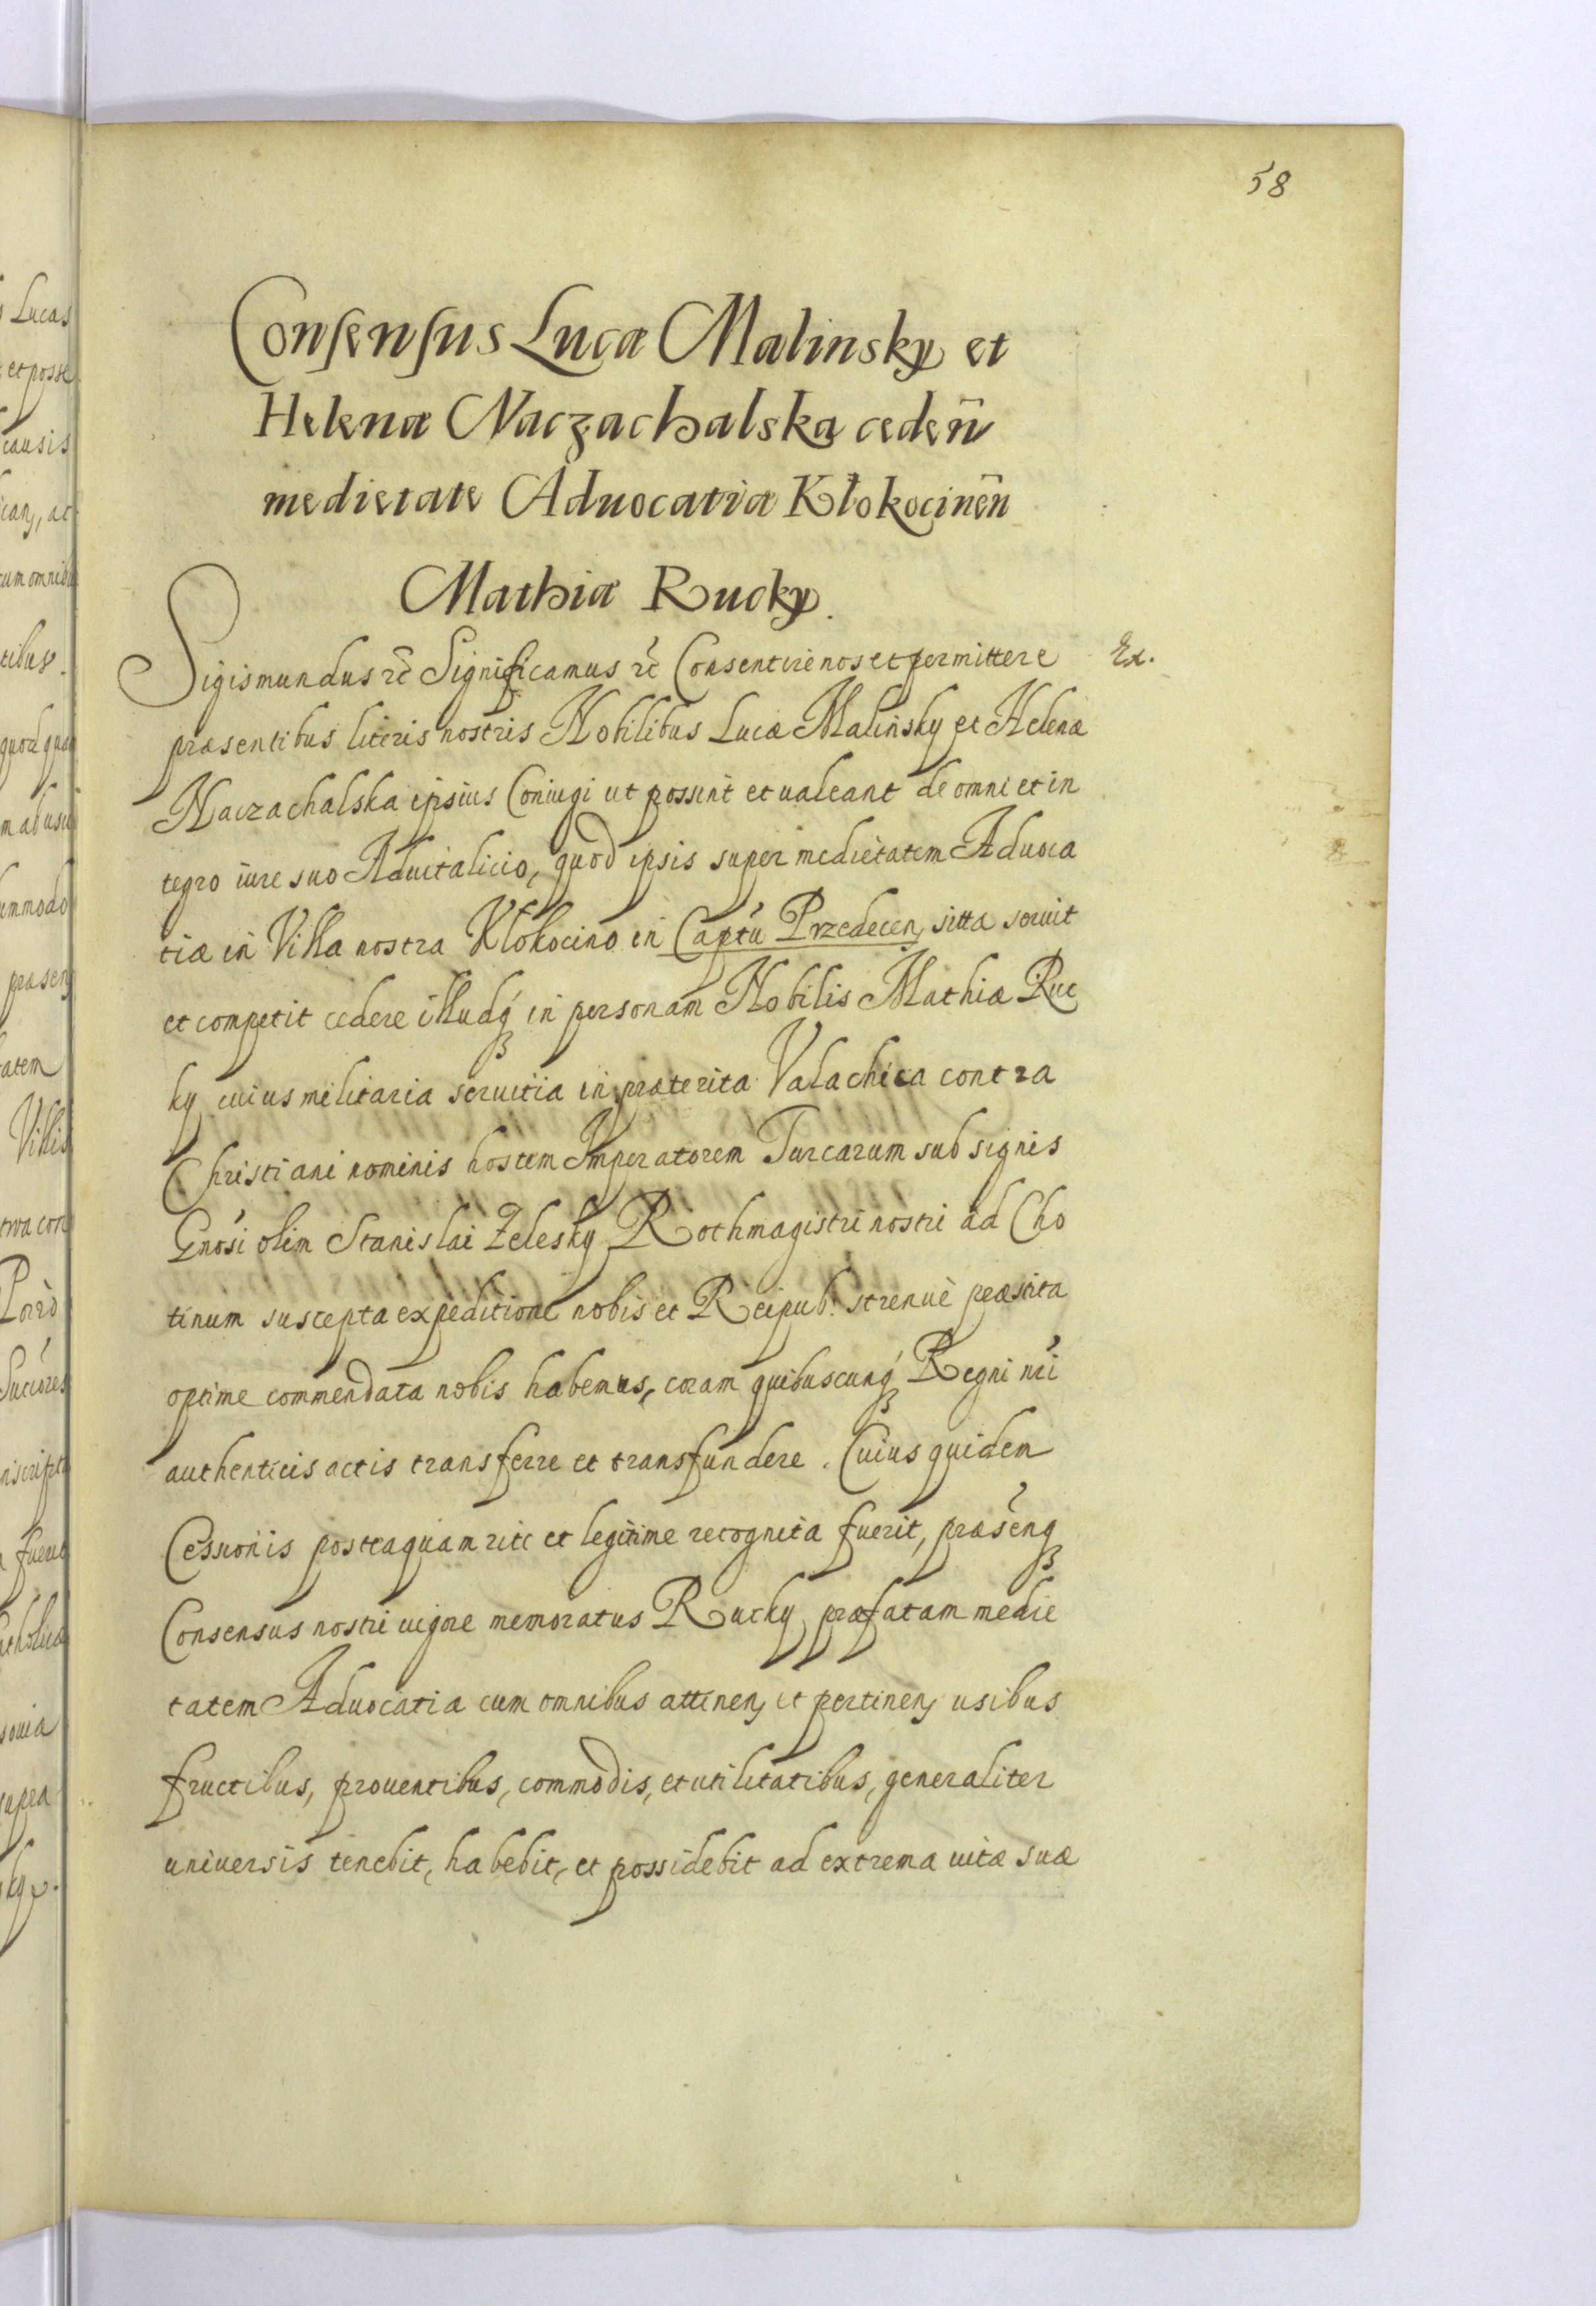 58
Consensus Lucæ Malinsky et
Helenæ Naczachalska ceden̄
medietate Aduocatiæ Kłokocinen̄
Mathiæ Rucky.
Sigismundus etc̃ Significamus etc̃ Consentire nos et permittere
Ex.
præsentibus literis nostris Nobilibus Lucæ Malinsky et Helenæ
Naczachalska ipsius Coniugi ut possint et ualeant de omni et in
tegro iure suo Aduitalicio, quod ipsis super medietatem Aduoca
tiæ in Villa nostra Kłokocino in Captũ Przedecen, sitta seruit
et competit cedere illudq́ꝫ in personam Nobilis Mathiæ Ruc
ky cuius militaria seruitia in præterita Valachica contra
Christiani nominis hostem Imperatorem Turcarum sub signis
Gnõsi olim Stanislai Zelesky Rothmagistri nostri ad Cho
tinum suscepta expeditione nobis et Reipub: strenuè præstita
optime commendata nobis habemus, coram quibuscunq́ꝫ Regni nr̃i
authenticis actis transferre et transfundere. Cuius quidem
Cessionis posteaquam rite et legitime recognita fuerit, præsẽnqꝫ
Consensus nostri uigore memoratus Rucky præfatam medie
tatem Aduocatiæ cum omnibus attinen, et pertinen, usibus
fructibus, prouentibus, commodis, et utilitatibus, generaliter
uniuersis tenebit, habebit, et possidebit ad extrema uitæ suæ
s Lucas
et posse
causis
ican, ac
cum omnib
tibus.
quod qua
m ab usu
ommodo
præsen
tatem
Villis
twa con
Porrò
Succõres
nscript
fueri
atholicæ
souia
supra